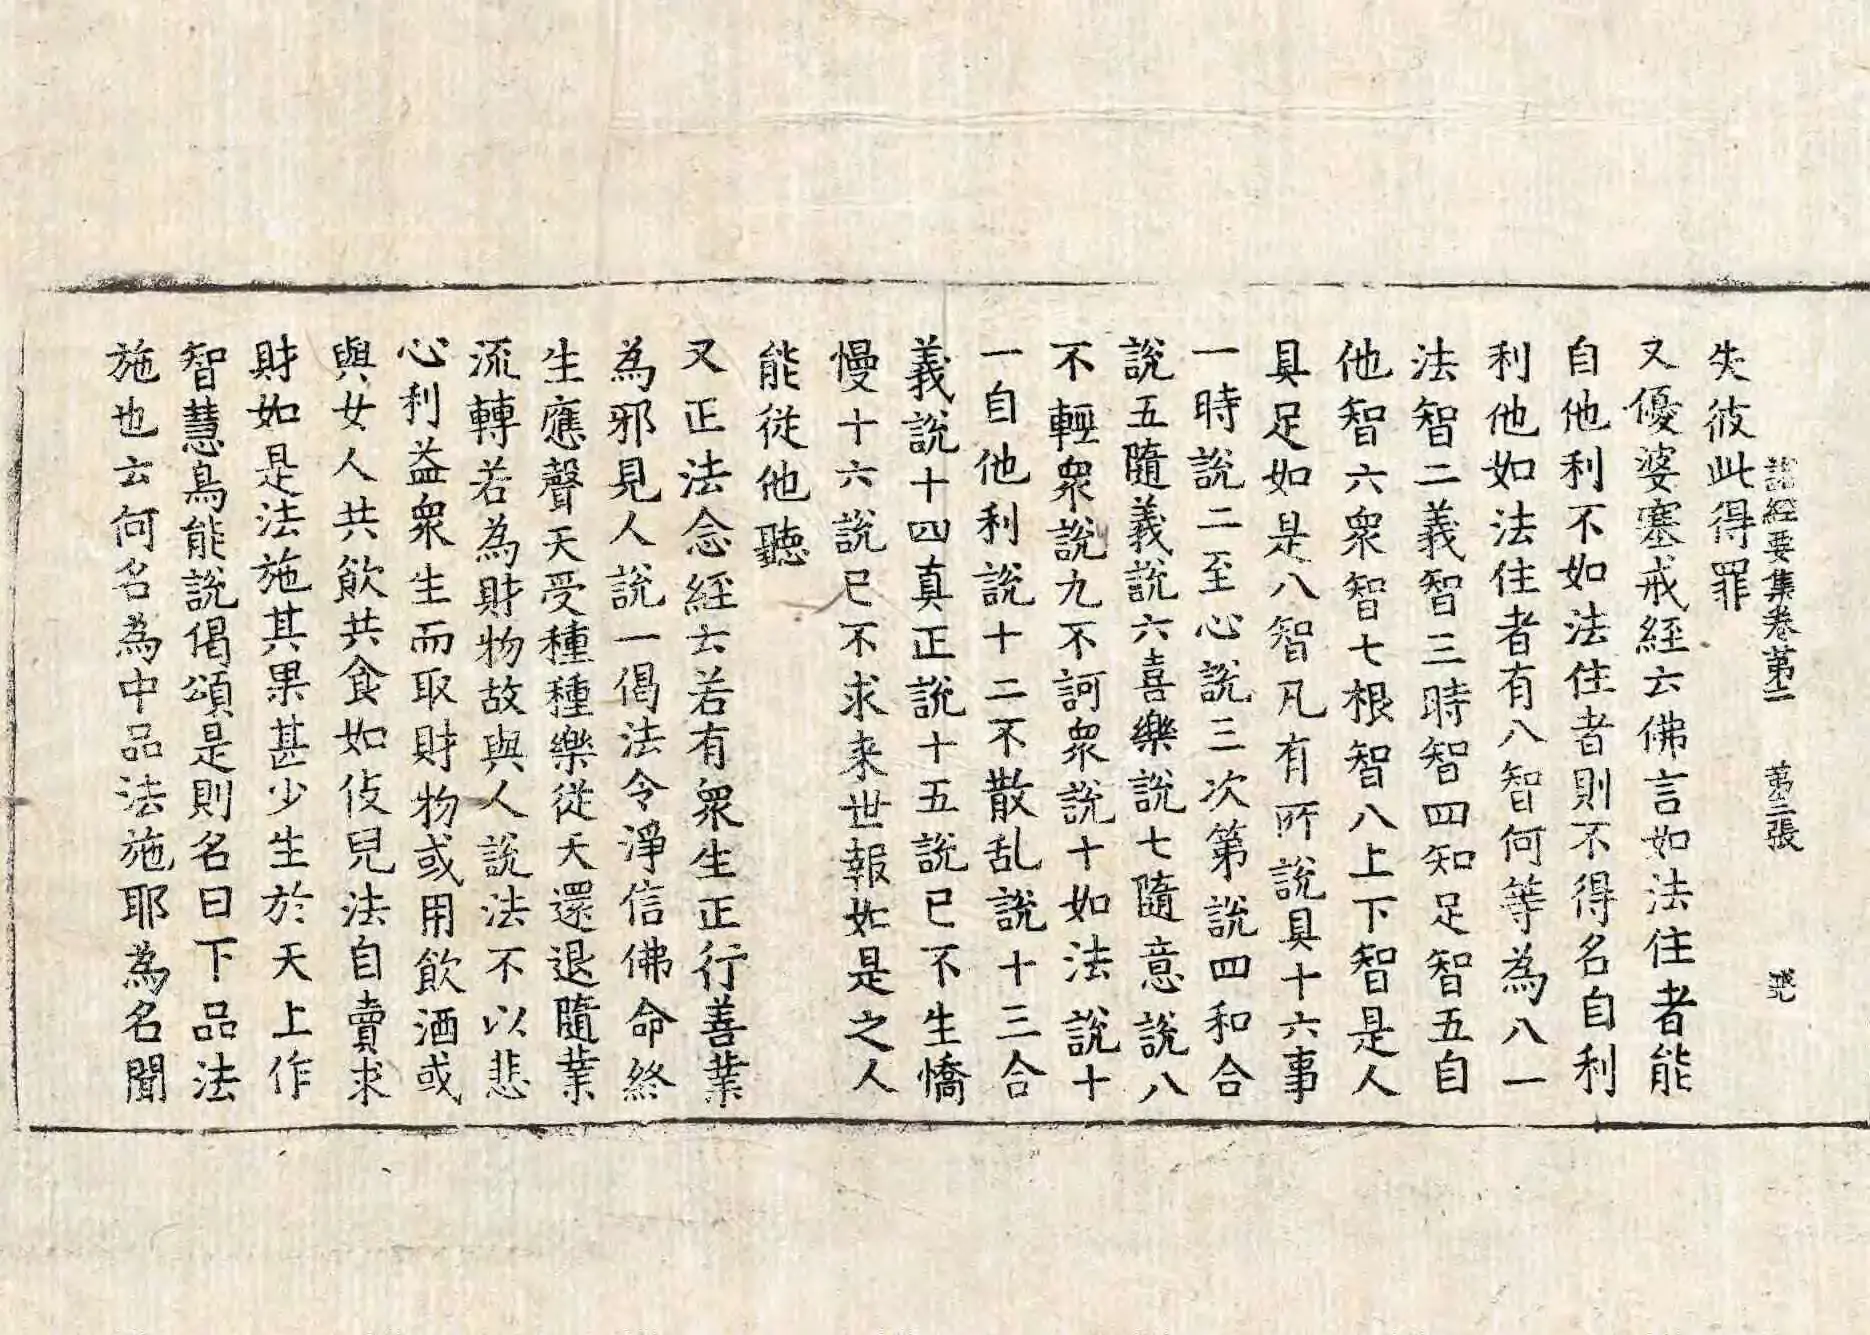 諸經要集卷第二 第三張 冠
失彼此得罪
又優婆塞戒經云佛言如法住者能
自他利不如法住者則不得名自利
利他如法住者有八智何等為八一
法智二義智三時智四知足智五自
他智六衆智七根智八上下智是人
具足如是八智凡有所說具十六事
一時說二至心說三次第說四和合
說五隨義說六喜樂說七隨意說八
不輕衆說九不訶衆說十如法說十
一自他利說十二不散乱說十三合
義說十四真正說十五說已不生憍
慢十六說已不求来世報如是之人
能從他聽
又正法念經云若有衆生正行善業
為邪見人說一偈法令淨信佛命終
生應聲天受種種樂從天還退隨業
流轉若為財物故與人說法不以悲
心利益衆生而取財物或用飲酒或
與女人共飲共食如伎兒法自賣求
財如是法施其果甚少生於天上作
智慧鳥能說偈頌是則名曰下品法
施也云何名為中品法施耶為名聞